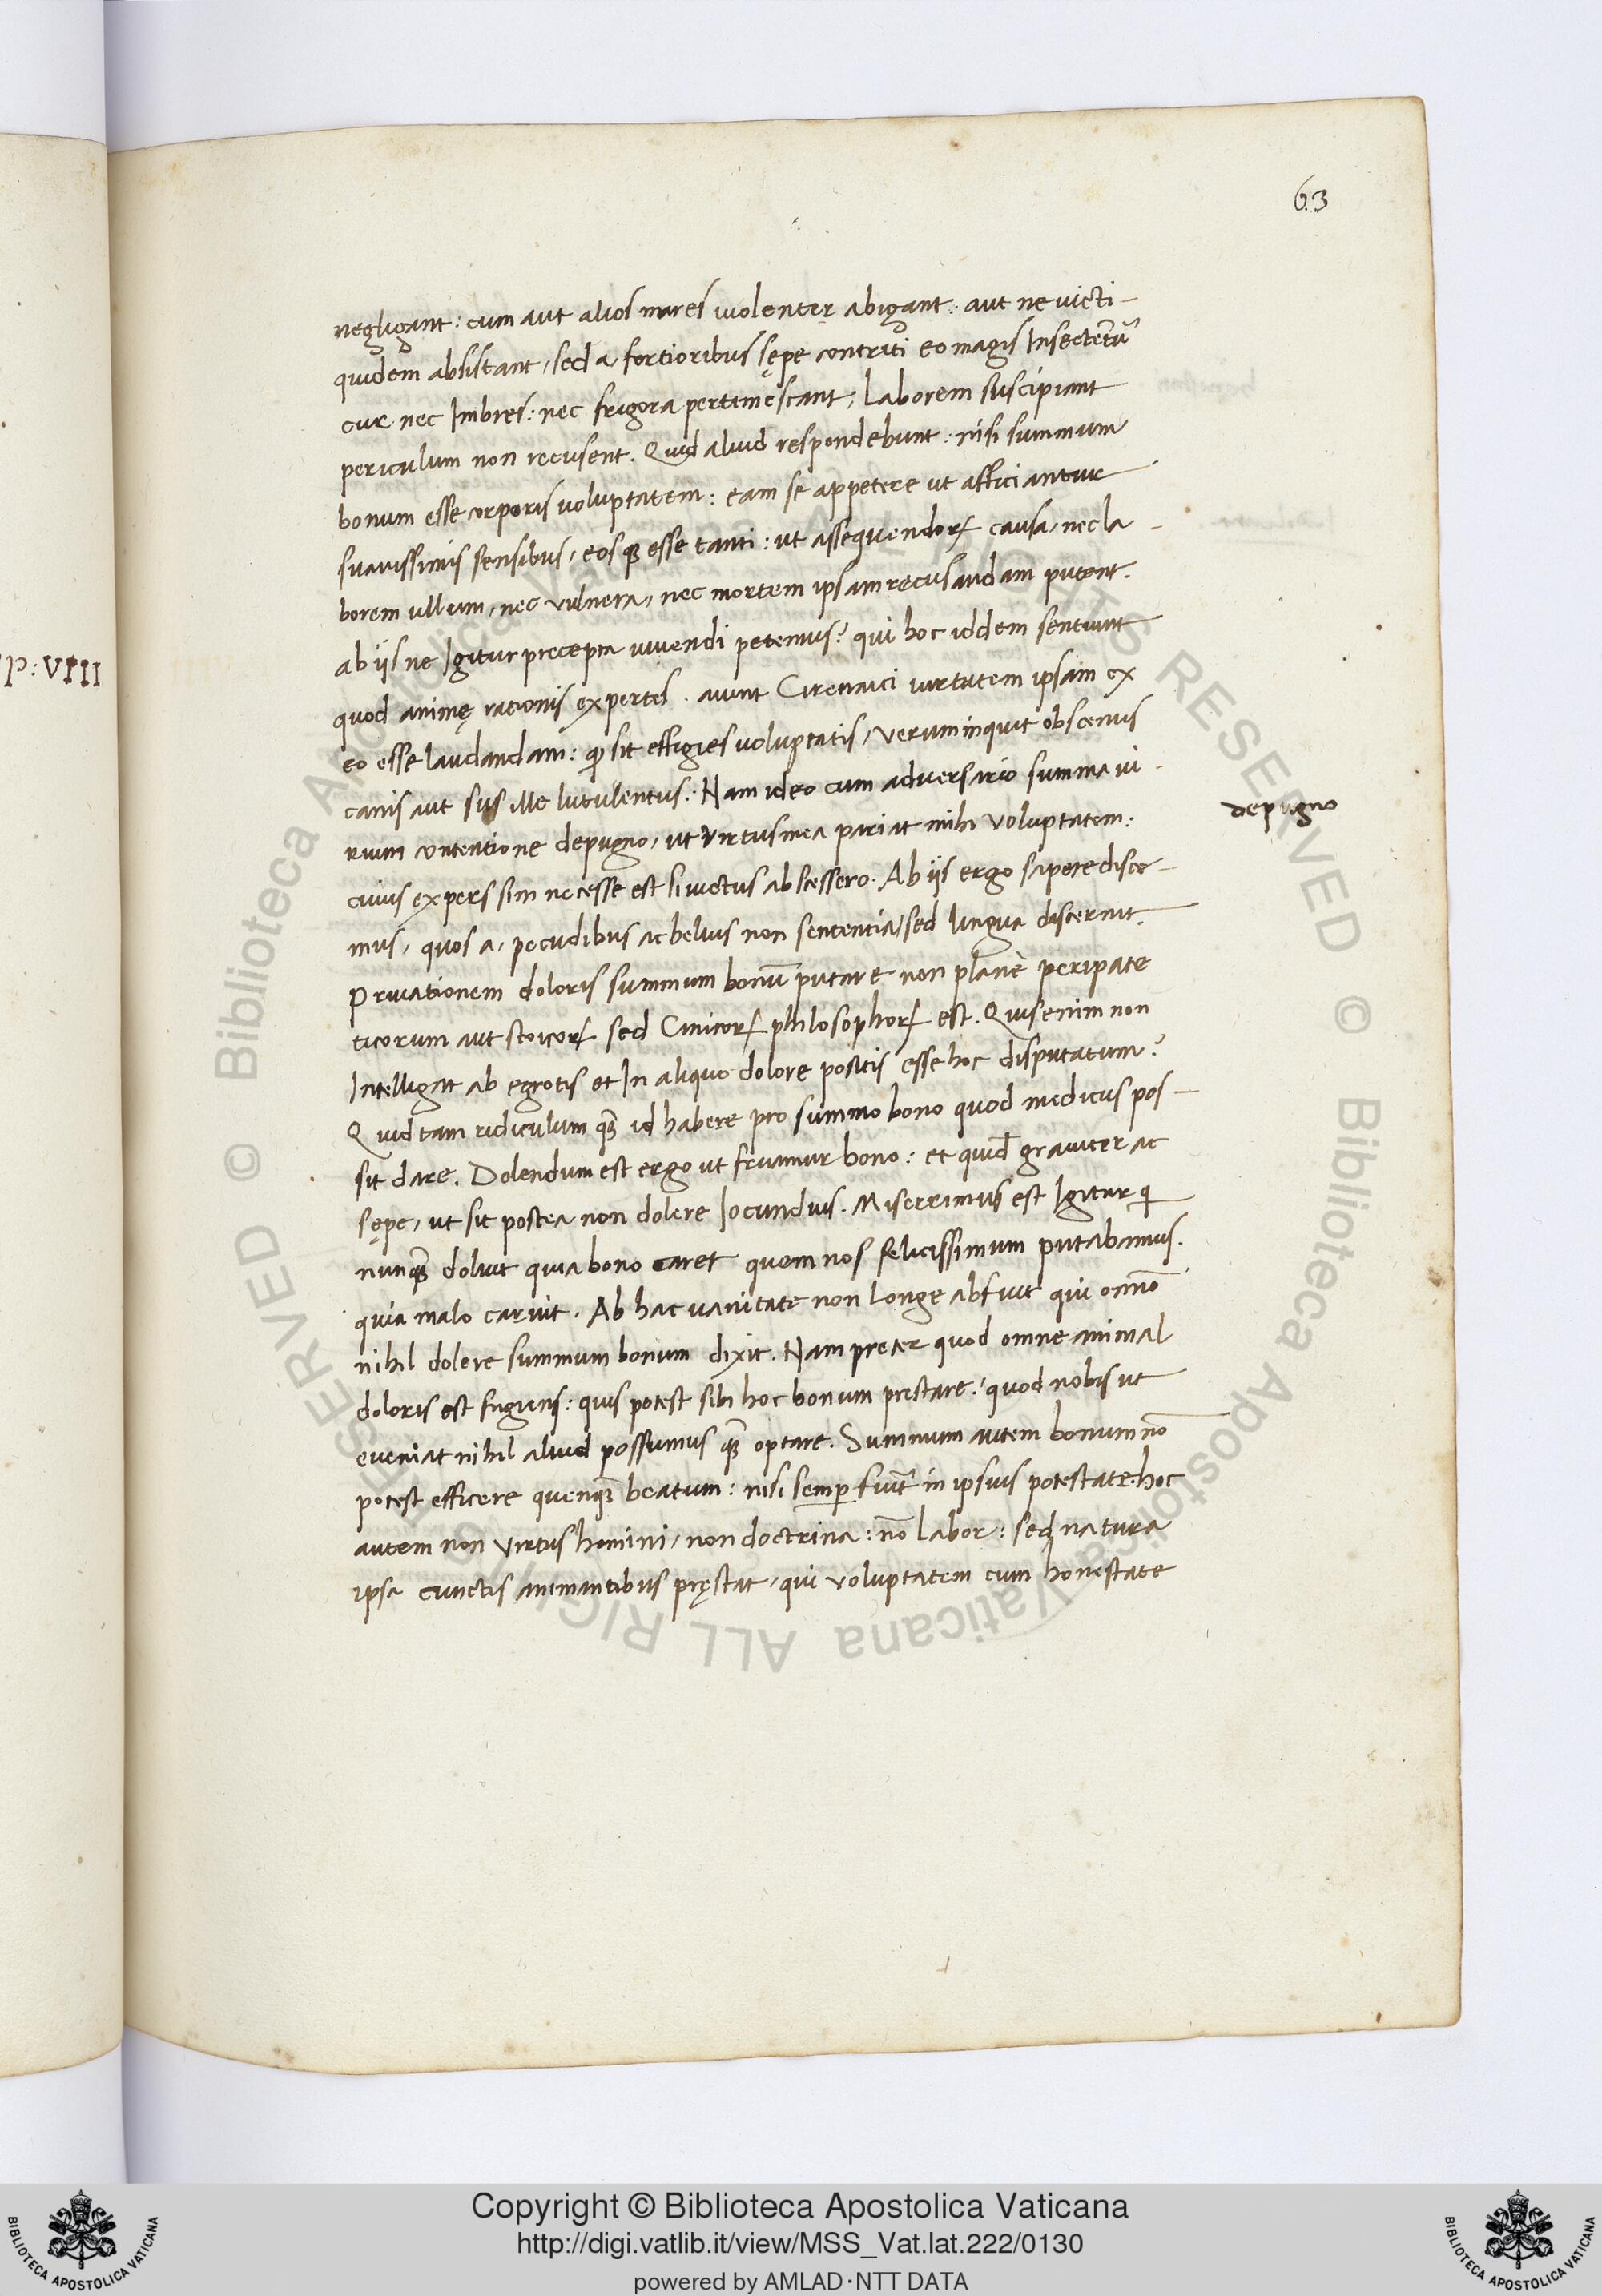 63
negligant: cum aut alios mares uiolenter abigant: aut ne uicti-
quidem absistant, sed a, fortioribus sępe contriti eo magis Insectent᷑
cur nec Imbres: nec frigora pertimescant, Laborem suscipiant
periculum non recusent. Quid aliud respondebunt: nisi summum
bonum esse corporis uoluptatem: eam se appetere ut afficiantur
suauissimis sensibus, eosqꝫ esse tanti: ut assequendoꝝ causa, nec la-
borem ullum, nec vulnera, nec mortem ipsam recusandam putent.
ab iis ne Igitur precepta uiuendi petemus? qui hoc iddem sentiunt
quod animę rationis expertes. aiunt Cirenaici uirtutem ipsam ex
eo esse laudandam: ꝙ sit effigies uoluptatis, verum inquit obscenus
canis aut sus ille lutulentus: Nam ideo cum aduersario summa ui-
rium contentione depugno, ut virtus mea pariat mihi voluptatem:
cuius expers sim necesse est si uictus abscessero. Ab iis ergo sapere disce-
mus, quos a, pecudibus ac beluis non sententia, sed lingua discernit.
Priuationem doloris summum bonū putare non planè peripate
ticorum aut stoicoꝝ sed Clinicoꝝ philosophoꝝ est. Quis enim non
Intelligat ab egrotis et In aliquo dolore positis esse hoc disputatum?
Quid tam ridiculum qꝫ̃ id habere pro summo bono quod medicus pos-
sit dare. Dolendum est ergo ut fruamur bono: et quid̄ grauiter ac
sępe, ut sit postea non dolere Iocundius. Miserrimus est Igitur qi
nunqꝫ̃ doluit quia bono caret quem nos felicissimum putabamus.
quia malo caruit. Ab hac uanitate non longe abfuit qui omnō
nihil dolere summum bonum dixit. Nam preter quod omne animal
doloris est fugiens: quis potest sibi hoc bonum prestare? quod nobis ut
eueniat nihil aliud possumus qꝫ̃ optare. Summum autem bonum nō
potest efficere quenqꝫ̃ beatum: nisi semꝑ fuit᷑ in ipsius potestate. hoc
autem non virtus homini, non doctrina: nō labor: sed natura
ipsa cunctis animantibus pręstat, qui voluptatem cum honestate
depugno
P: VIII
Copyright © Biblioteca Apostolica Vaticana
http://digi.vatlib.it/view/MSS_Vat.lat.222/0130
powered by AMLAD·NTT DATA
BIBLIOTECA APOSTOLICA VATICANA
BIBLIOTECA APOSTOLICA VATICANA
© Biblioteca Apostolica Vaticana ALL RIGHTS RESERVED
© Biblioteca Apostolica Vaticana ALL RIGHTS RESERVED